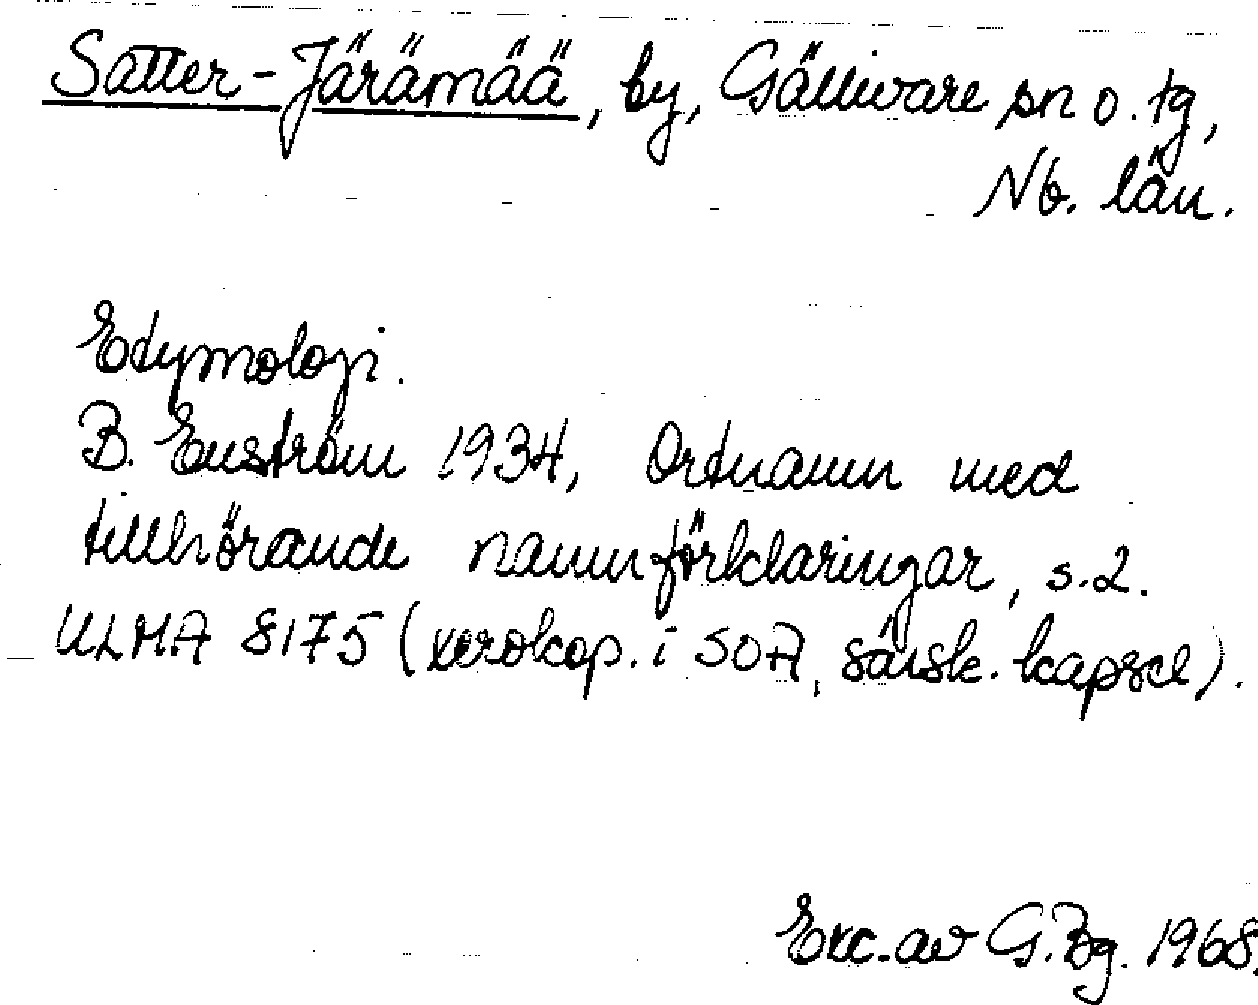 Satter-Järämää, by, Gällivare sn o. tg,
Nb. län.
Etymologi.
B. Enström 1934, Ortnamn med
tillhörande namnförklaringar, s.2.
ULMA 8175 (xerokop. i SOA, särsk. kapsel).
Exc. av G.Bg. 1968.